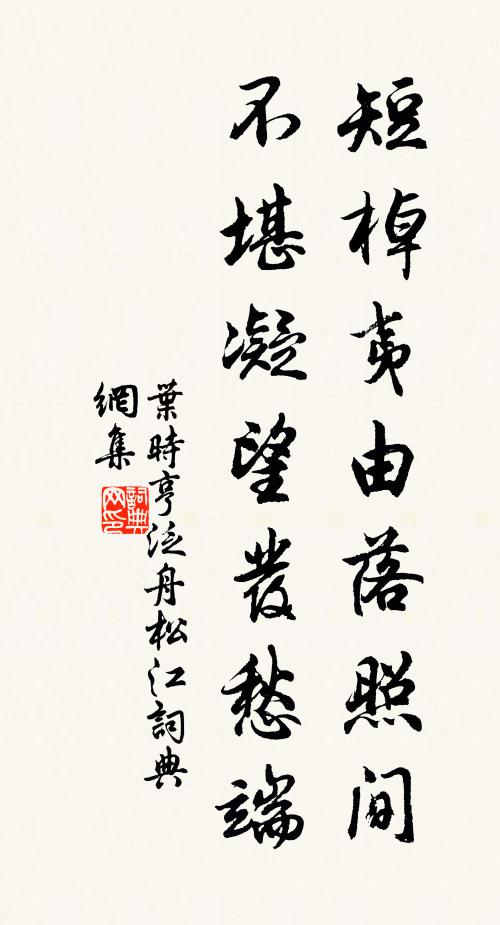 短棹夷由落照間
不堪凝望發愁端
葉時亨泛舟松江詞典
網集
詞典网印